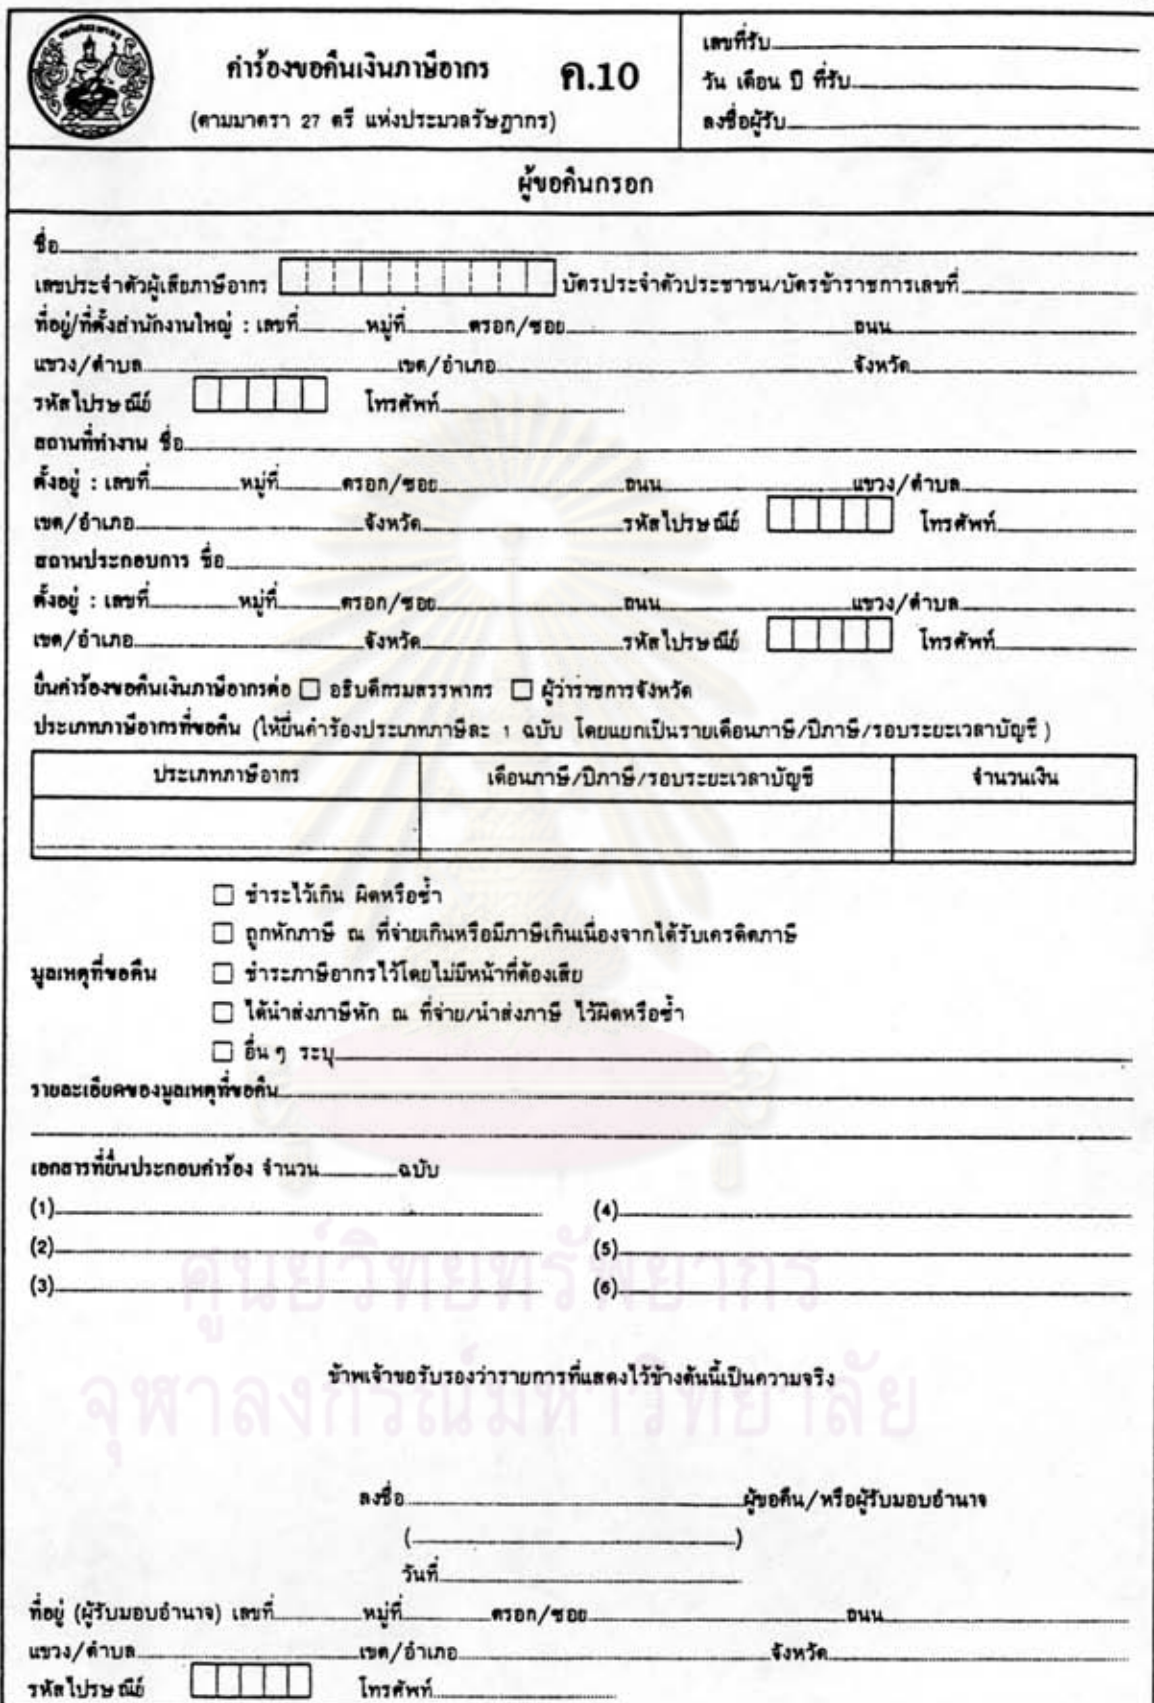 คำร้องขอคืนเงินภาษีอากร ค.10
(ตามมาตรา 27 ตรี แห่งประมวลรัษฎากร)
เลขที่รับ
วัน เดือน ปี ที่รับ
ลงชื่อผู้รับ
ผู้ขอคืนกรอก
ชื่อ
เลขประจำตัวผู้เสียภาษีอากร บัตรประจำตัวประชาชน/บัตรข้าราชการเลขที่
ที่อยู่/ที่ตั้งสำนักงานใหญ่ : เลขที่ หมู่ที่ ตรอก/ซอย ถนน
แขวง/ตำบล เขต/อำเภอ จังหวัด
รหัสไปรษณีย์ โทรศัพท์
สถานที่ทำงาน ชื่อ
ตั้งอยู่ : เลขที่ หมู่ที่ ตรอก/ซอย ถนน แขวง/ตำบล
เขต/อำเภอ จังหวัด รหัสไปรษณีย์ โทรศัพท์
สถานประกอบการ ชื่อ
ตั้งอยู่ : เลขที่ หมู่ที่ ตรอก/ซอย ถนน แขวง/ตำบล
เขต/อำเภอ จังหวัด รหัสไปรษณีย์ โทรศัพท์
ยื่นคำร้องขอคืนเงินภาษีอากรต่อ ☐ อธิบดีกรมสรรพากร ☐ ผู้ว่าราชการจังหวัด
ประเภทภาษีอากรที่ขอคืน (ให้ยื่นคำร้องประเภทภาษีละ 1 ฉบับ โดยแยกเป็นรายเดือนภาษี/ปีภาษี/รอบระยะเวลาบัญชี)
ประเภทภาษีอากร เดือนภาษี/ปีภาษี/รอบระยะเวลาบัญชี จำนวนเงิน
☐ ชำระไว้เกิน ผิดหรือซ้ำ
☐ ถูกหักภาษี ณ ที่จ่ายเกินหรือมีภาษีเกินเนื่องจากได้รับเครดิตภาษี
มูลเหตุที่ขอคืน ☐ ชำระภาษีอากรไว้โดยไม่มีหน้าที่ต้องเสีย
☐ ได้นำส่งภาษีหัก ณ ที่จ่าย/นำส่งภาษี ไว้ผิดหรือซ้ำ
☐ อื่นๆ ระบุ
รายละเอียดของมูลเหตุที่ขอคืน
เอกสารที่ยื่นประกอบคำร้อง จำนวน ฉบับ
(1) (4)
(2) (5)
(3) (6)
ศูนย์วิทยทรัพยากร
ข้าพเจ้าขอรับรองว่ารายการที่แสดงไว้ข้างต้นนี้เป็นความจริง
จุฬาลงกรณ์มหาวิทยาลัย
ลงชื่อ ผู้ขอคืน/หรือผู้รับมอบอำนาจ
( )
วันที่
ที่อยู่ (ผู้รับมอบอำนาจ) เลขที่ หมู่ที่ ตรอก/ซอย ถนน
แขวง/ตำบล เขต/อำเภอ จังหวัด
รหัสไปรษณีย์ โทรศัพท์